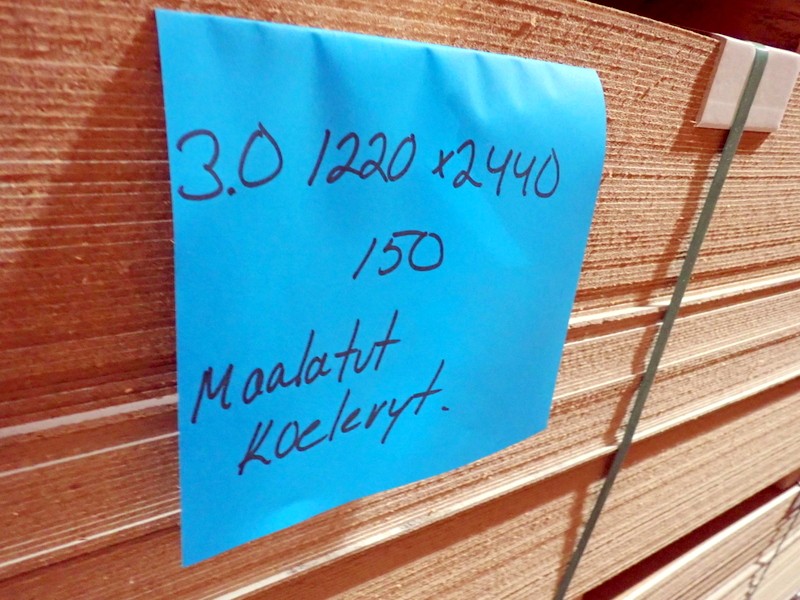 3.0 1220 x2440
150
Maalatut
Koelevyt.